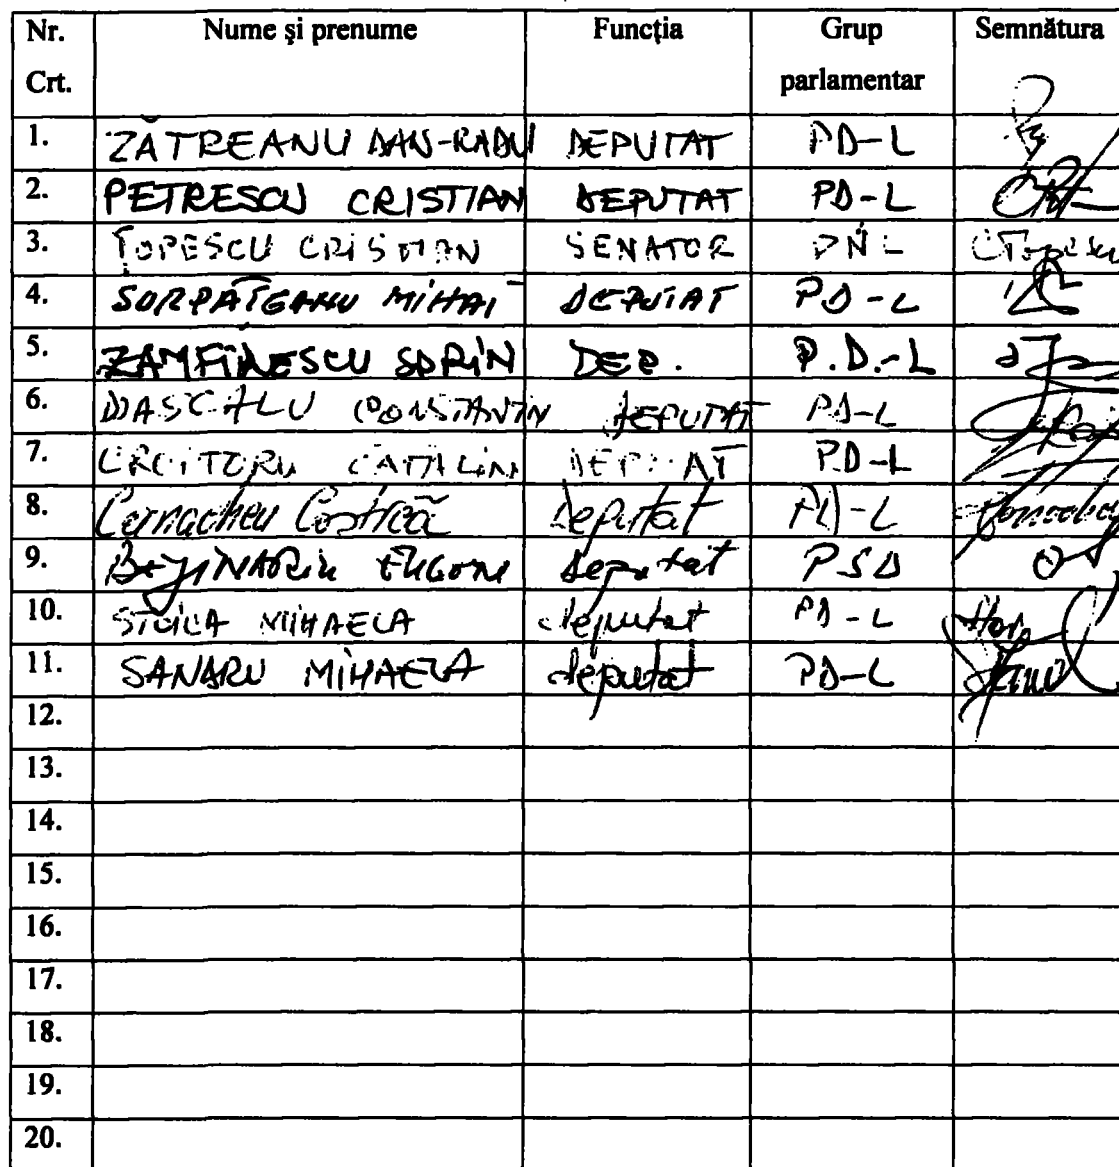 Nr. Crt. Nume şi prenume Funcţia Grup parlamentar Semnătura
1. ZĂTREANU DAN-RADU DEPUTAT PD-L
2. PETRESCU CRISTIAN DEPUTAT PD-L
3. ŢOPESCU CRISTIAN SENATOR PNL CTopescu
4. MIHAI DEPUTAT PD-L
5. SORIN DEP. P.D.-L
6. DASCALU CONSTANTIN DEPUTAT PD-L
7. CROITORU CATALIN DEPUTAT PD-L
8. Canacheu Costică deputat PD-L
9. deputat PSD
10. STOICA MIHAELA deputat PD-L
11. SANDRU MIHAELA deputat PD-L
12.
13.
14.
15.
16.
17.
18.
19.
20.